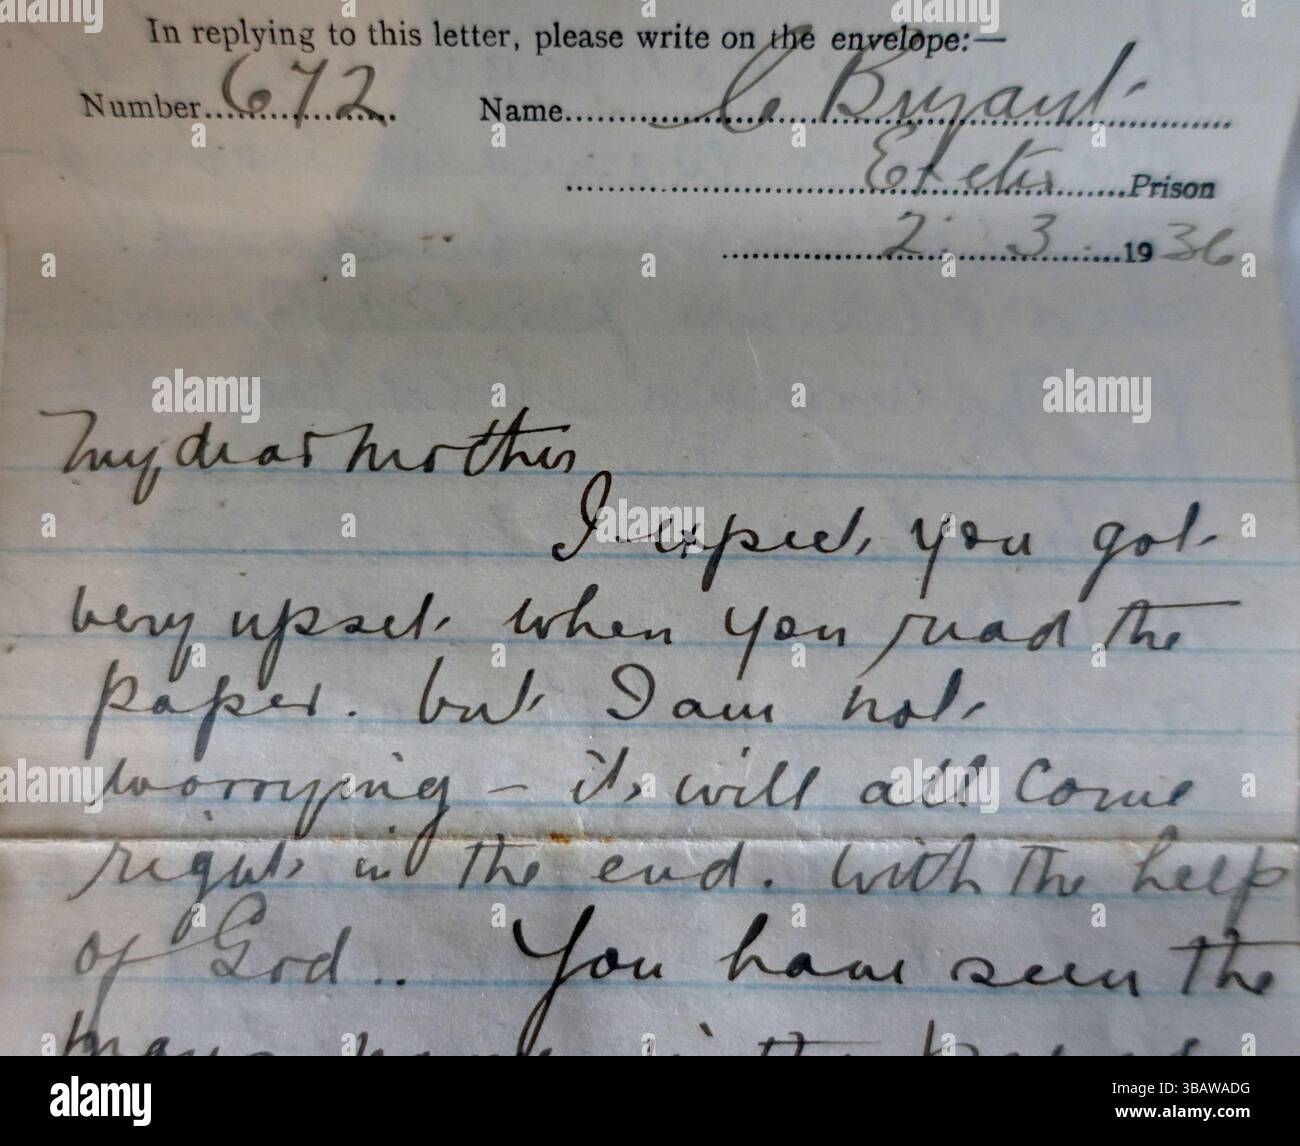 In replying to this letter, please write on the envelope:—
Number 672 Name C Bryant
Exeter Prison
2. 3. 1936
My dear Mother
I expect you got
very upset when you read the
paper. but I am not
worrying – it will all come
right in the end. With the help
of God.. You have seen the
in the
alamy
Image ID: 3BAWADG
www.alamy.com